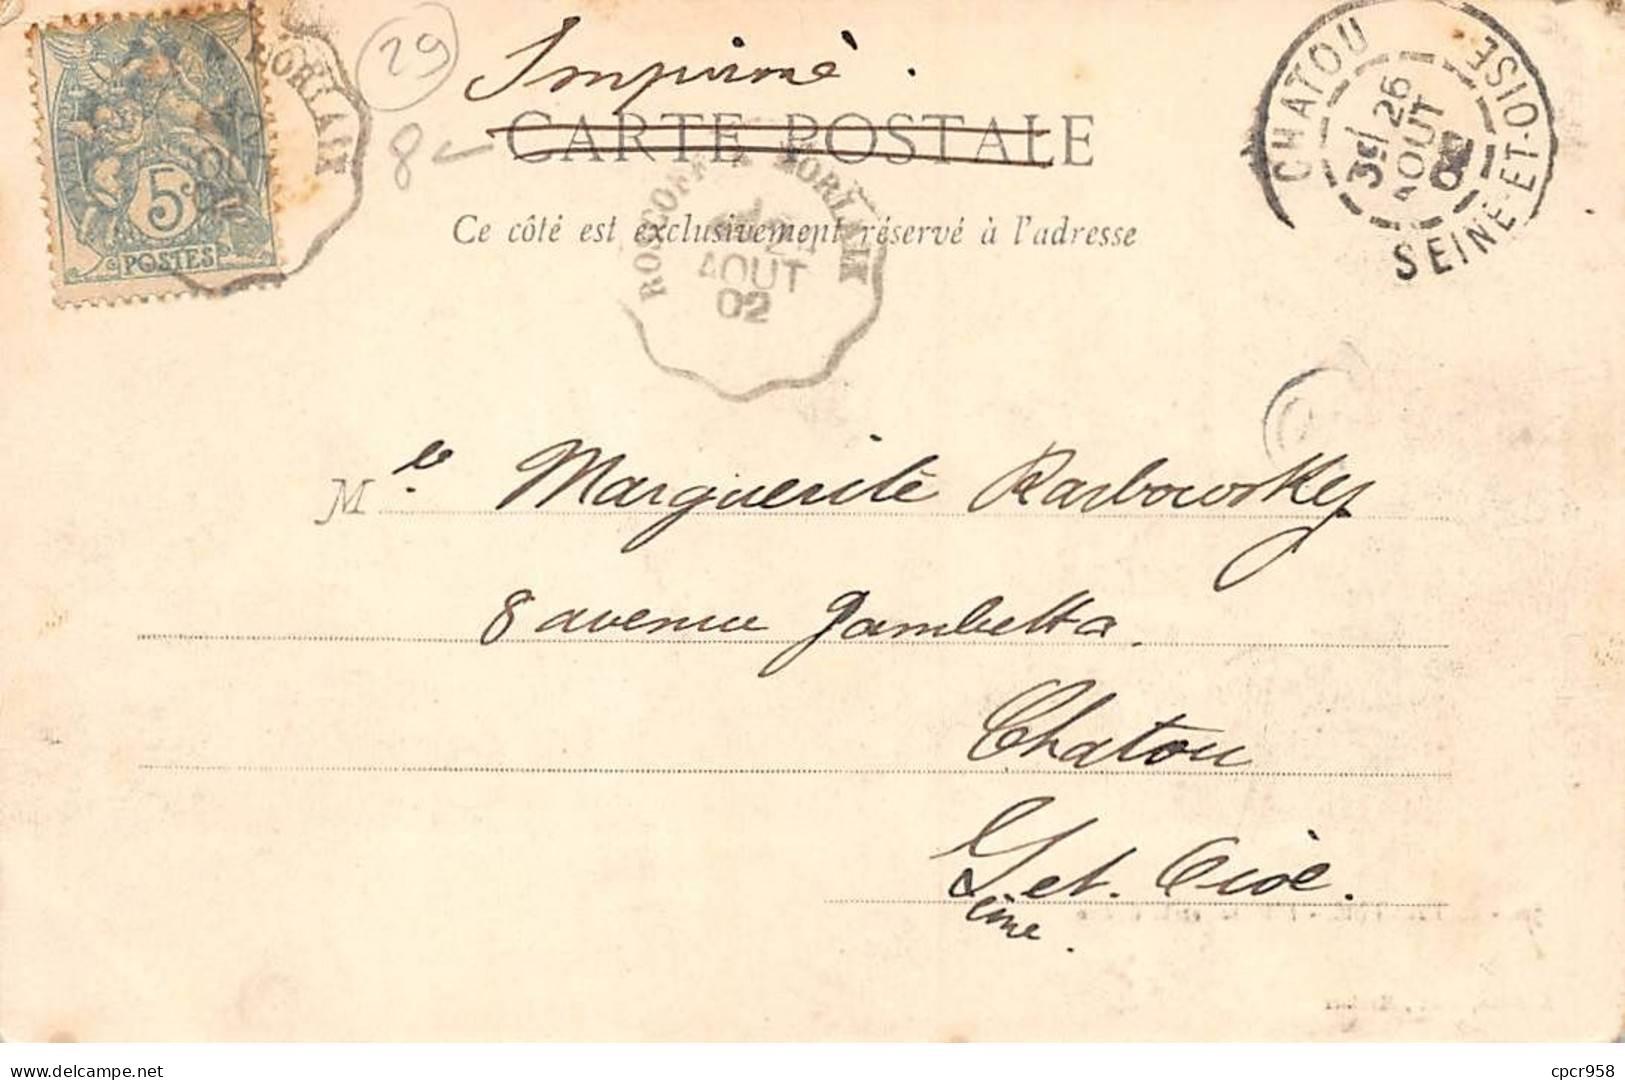 Imprimé.
CARTE POSTALE
Ce côté est exclusivement réservé à l'adresse
5c
POSTES
MORLAIX
29
8
ROSCOFF À MORLAIX
AOUT
02
CHATOU
SEINE-ET-OISE
26
AOUT
Mle. Marguerite Rarbowsky
8 avenue Gambetta.
Chatou
S. et. Oise.
eine.
Delcampe.net
cpcr958